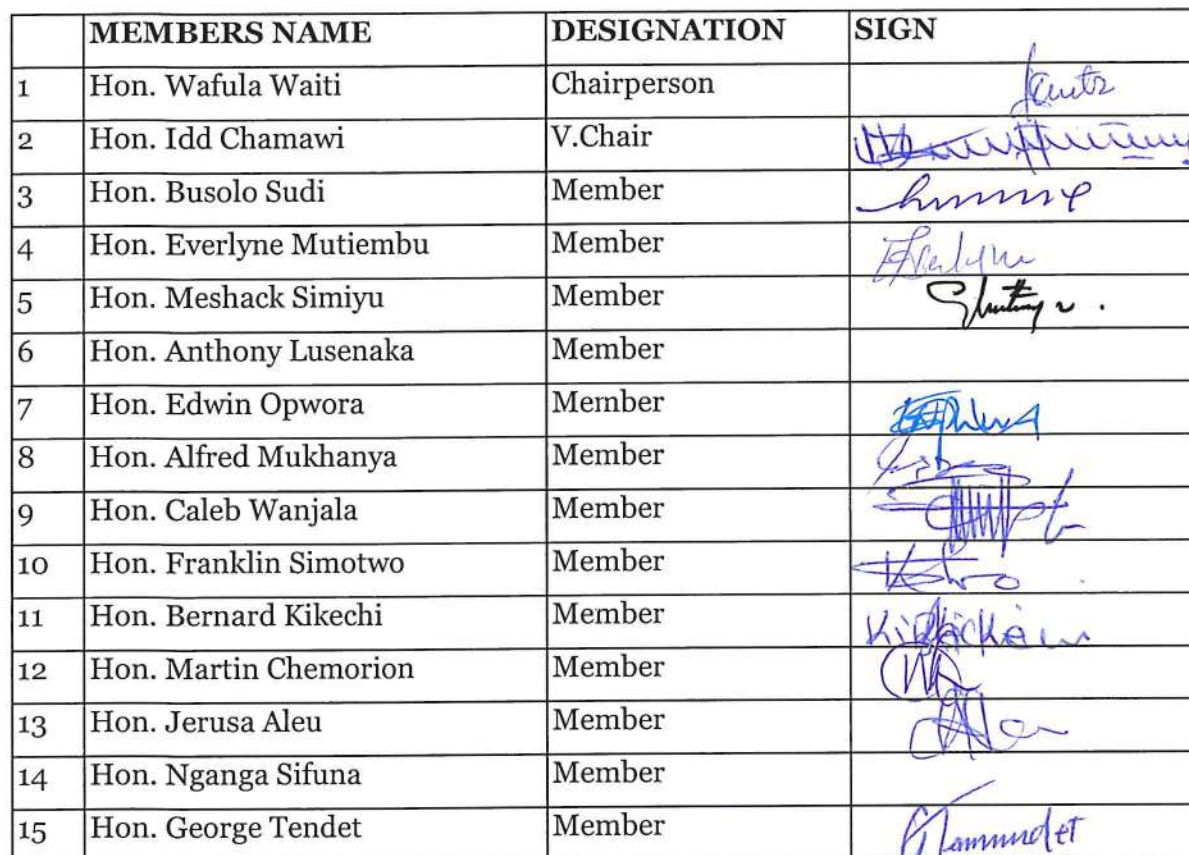 MEMBERS NAME DESIGNATION SIGN
1 Hon. Wafula Waiti Chairperson
2 Hon. Idd Chamawi V.Chair
3 Hon. Busolo Sudi Member
4 Hon. Everlyne Mutiembu Member
5 Hon. Meshack Simiyu Member
6 Hon. Anthony Lusenaka Member
7 Hon. Edwin Opwora Member
8 Hon. Alfred Mukhanya Member
9 Hon. Caleb Wanjala Member
10 Hon. Franklin Simotwo Member
11 Hon. Bernard Kikechi Member
12 Hon. Martin Chemorion Member
13 Hon. Jerusa Aleu Member
14 Hon. Nganga Sifuna Member
15 Hon. George Tendet Member